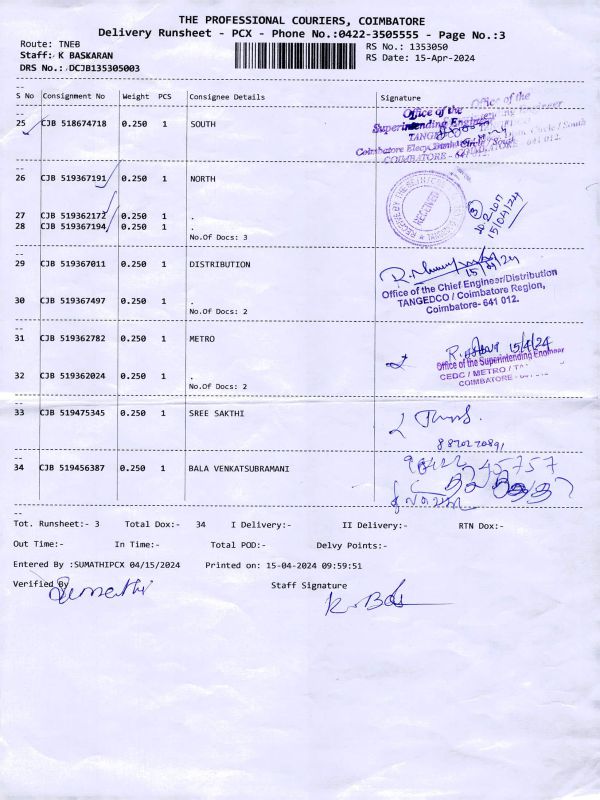 THE PROFESSIONAL COURIERS, COIMBATORE
Delivery Runsheet - PCX - Phone No.:0422-3505555 - Page No.:3
Route: TNEB
RS No.: 1353050
Staff: K BASKARAN
RS Date: 15-Apr-2024
DRS No.: DCJB135305003
S No Consignment No Weight PCS Consignee Details Signature
25 CJB 518674718 0.250 1 SOUTH
Office of the
Superintending Engineer
TANGEDCO
COIMBATORE - 641 012.
26 CJB 519367191 0.250 1 NORTH
RECEIVED
15/04/24
27 CJB 519362172 0.250 1 .
28 CJB 519367194 0.250 1 .
No.Of Docs: 3
29 CJB 519367011 0.250 1 DISTRIBUTION
15/04/24
Office of the Chief Engineer/Distribution
TANGEDCO / Coimbatore Region,
Coimbatore- 641 012.
30 CJB 519367497 0.250 1 .
No.Of Docs: 2
31 CJB 519362782 0.250 1 METRO
15/4/24
Office of the Superintending Engineer
CEDC / METRO /
COIMBATORE -
32 CJB 519362024 0.250 1 .
No.Of Docs: 2
33 CJB 519475345 0.250 1 SREE SAKTHI
34 CJB 519456387 0.250 1 BALA VENKATSUBRAMANI
Tot. Runsheet:- 3 Total Dox:- 34 I Delivery:- II Delivery:- RTN Dox:-
Out Time:- In Time:- Total POD:- Delvy Points:-
Entered By :SUMATHIPCX 04/15/2024 Printed on: 15-04-2024 09:59:51
Verified By Staff Signature
Sumathi